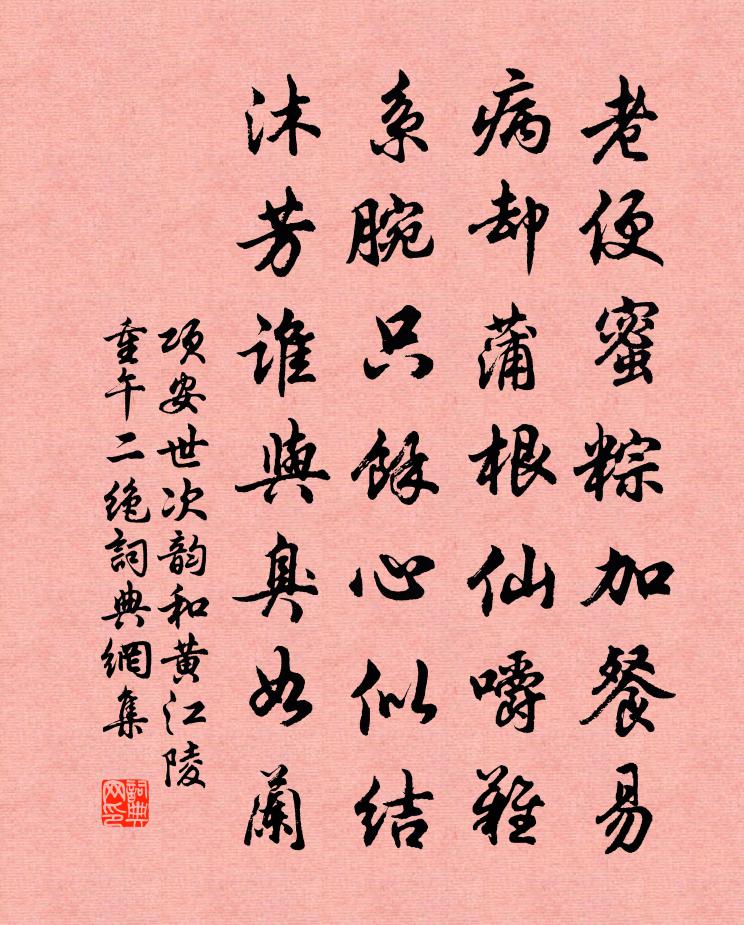 老便蜜粽加餐易
病却蒲根仙嚼難
系腕只餘心似结
沐芳谁與臭如蘭
项安世次韵和黄江陵
重午二绝詞典網集
詞典网印